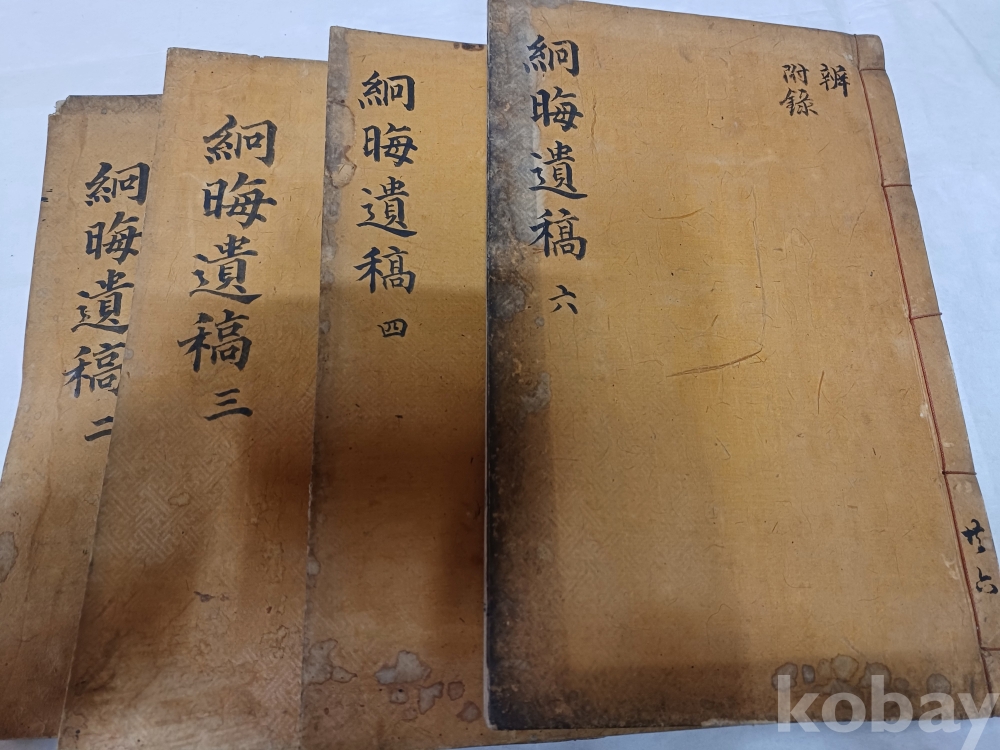 絅晦遺稿 二
絅晦遺稿 三
絅晦遺稿 四
絅晦遺稿 六
辨
附錄
共六
kobay